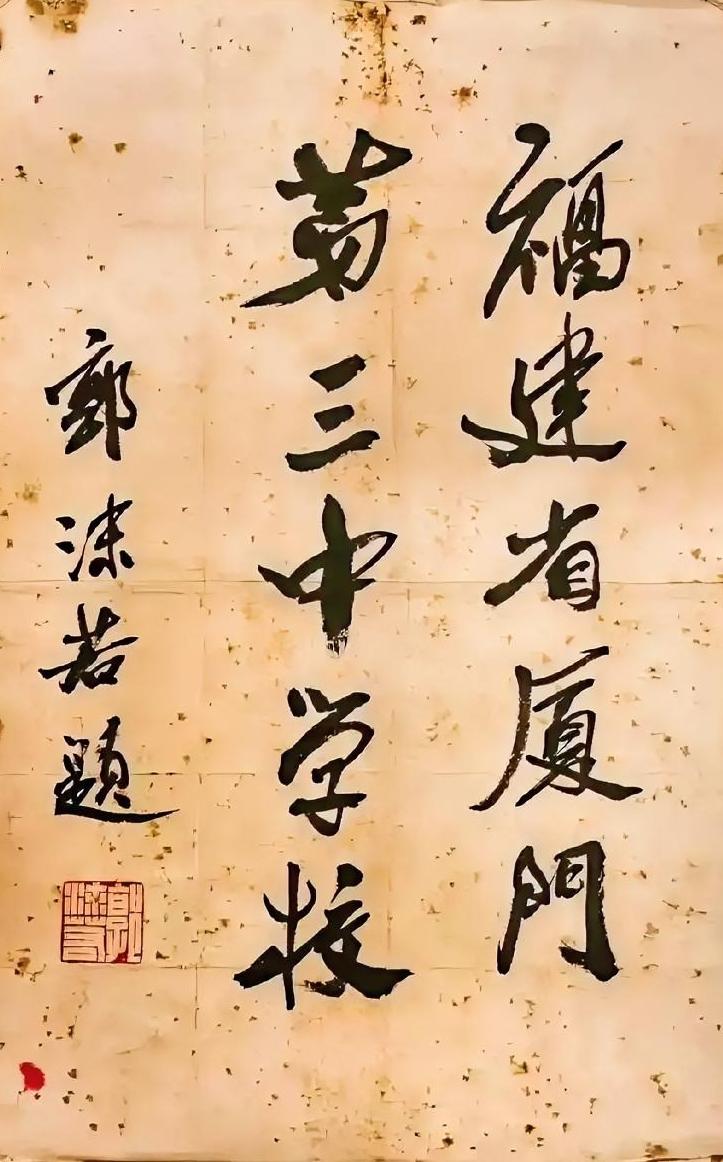 福建省厦門
第三中学校
郭沫若題
郭沫若